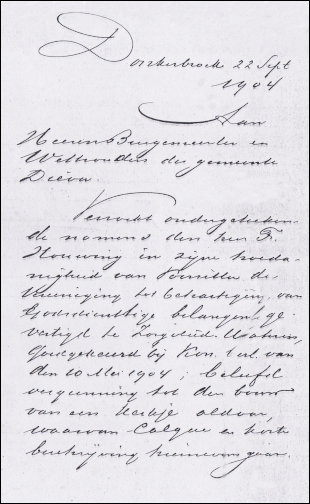 Donkerbroek 22 Sept
1904
Aan
Heeren Burgemeester en
Wethouders der gemeente
Diever.
Verzoekt ondergeteeken-
de namens den heer F.
Houwing in zijne hoeda-
nigheid van Voorzitter der
Vereeniging tot behartiging van
Godsdienstige belangen, ge-
vestigd te Zorgvlied. Statuten,
Goedgekeurd bij Kon. besl. van
den 10 Mei 1904; beleefd
vergunning tot den bouw
van een Kerkje aldaar,
waarvan Calque en korte
beschrijving hiernevens gaan.